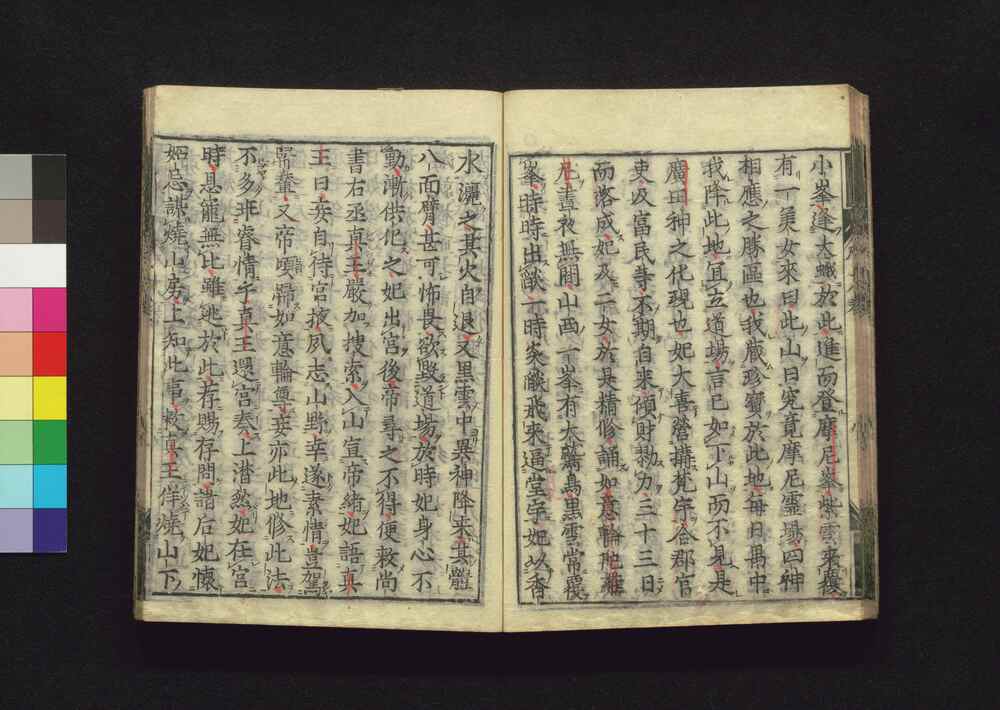 小峯逢大蛾於此進而登摩尼峯紫雲來覆
有一美女來曰此山曰究竟摩尼靈場四神
相應之勝區也我藏珍寶於此地每日禺中
我降此地宜立道場言已如下山而不見是
廣田神之化現也妃大喜營構梵宇合郡官
吏及富民等不期自来傾財勠力三十三日
而落成妃及二女於是精修誦如意輪陀羅
尼晝夜無間山西一峯有大鷲鳥黑雲常覆
峯時時出燄一時炎燄飛来逼堂宇妃以香
水灑之其火自退又黒雲中異神降来其體
八面臂甚可怖畏欲毀道場於時妃身心不
動漸供化之妃出宮後帝尋之不得便敕尚
書右丞真王嚴加搜索入山宣帝緒妃語真
王曰妾自待宮掖夙志山野幸遂素情豈駕
鸞輦又帝頭歸如意輪尊妾亦此地修此法
不多非睿情乎真王還宮奏上潸然妃在宮
時恩寵無比雖逃於此荐賜存問諸后妃懷
妬忌謀燒山房上知此事敕真王佯燒山下